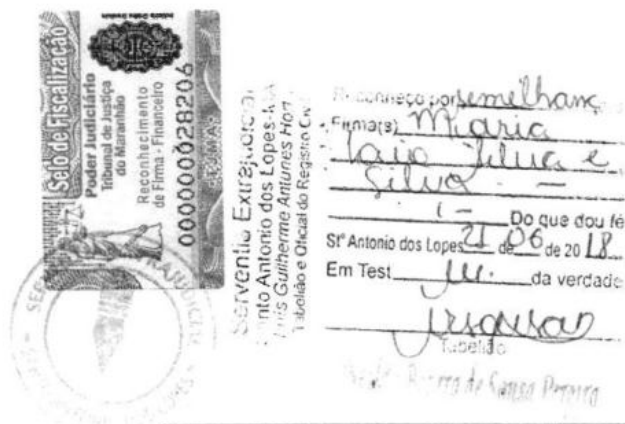 Selo de Fiscalização
Poder Judiciário
Tribunal de Justiça
do Maranhão
Reconhecimento
de Firma - Financeiro
000000028206
Serventia Extrajudicial
Santo Antonio dos Lopes-MA
Luis Guilherme Antunes Hort
Tabelião e Oficial do Registro Civ
Reconheço por semelhança
Firma(s) Maria
Silva e
Silva. -
Do que dou fé
Stº Antonio dos Lopes 21 de 06 de 2018
Em Test da verdade
Tabelião
de Sousa Pereira